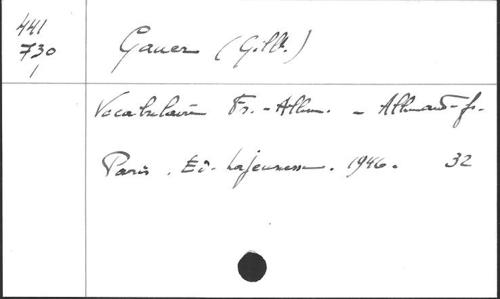 441
730
1
Gauer (Gilb.)
Vocabulaire Fr.-Allem. - Allemand-fr.
Paris. Ed. Lajeunesse. 1946. 32